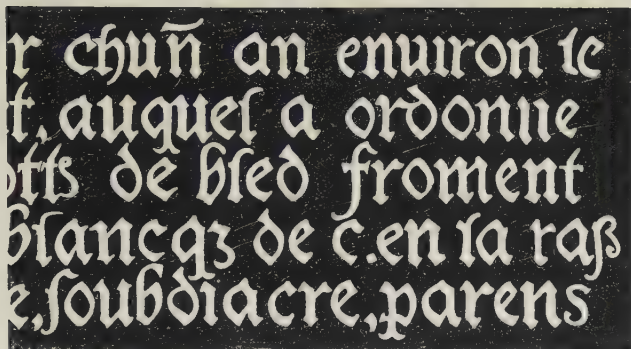 r chun̄ an enuiron le
t, auquel a ordonne
otts de bled froment
blancqz de c. en la raß
e, soubdiacre, parens